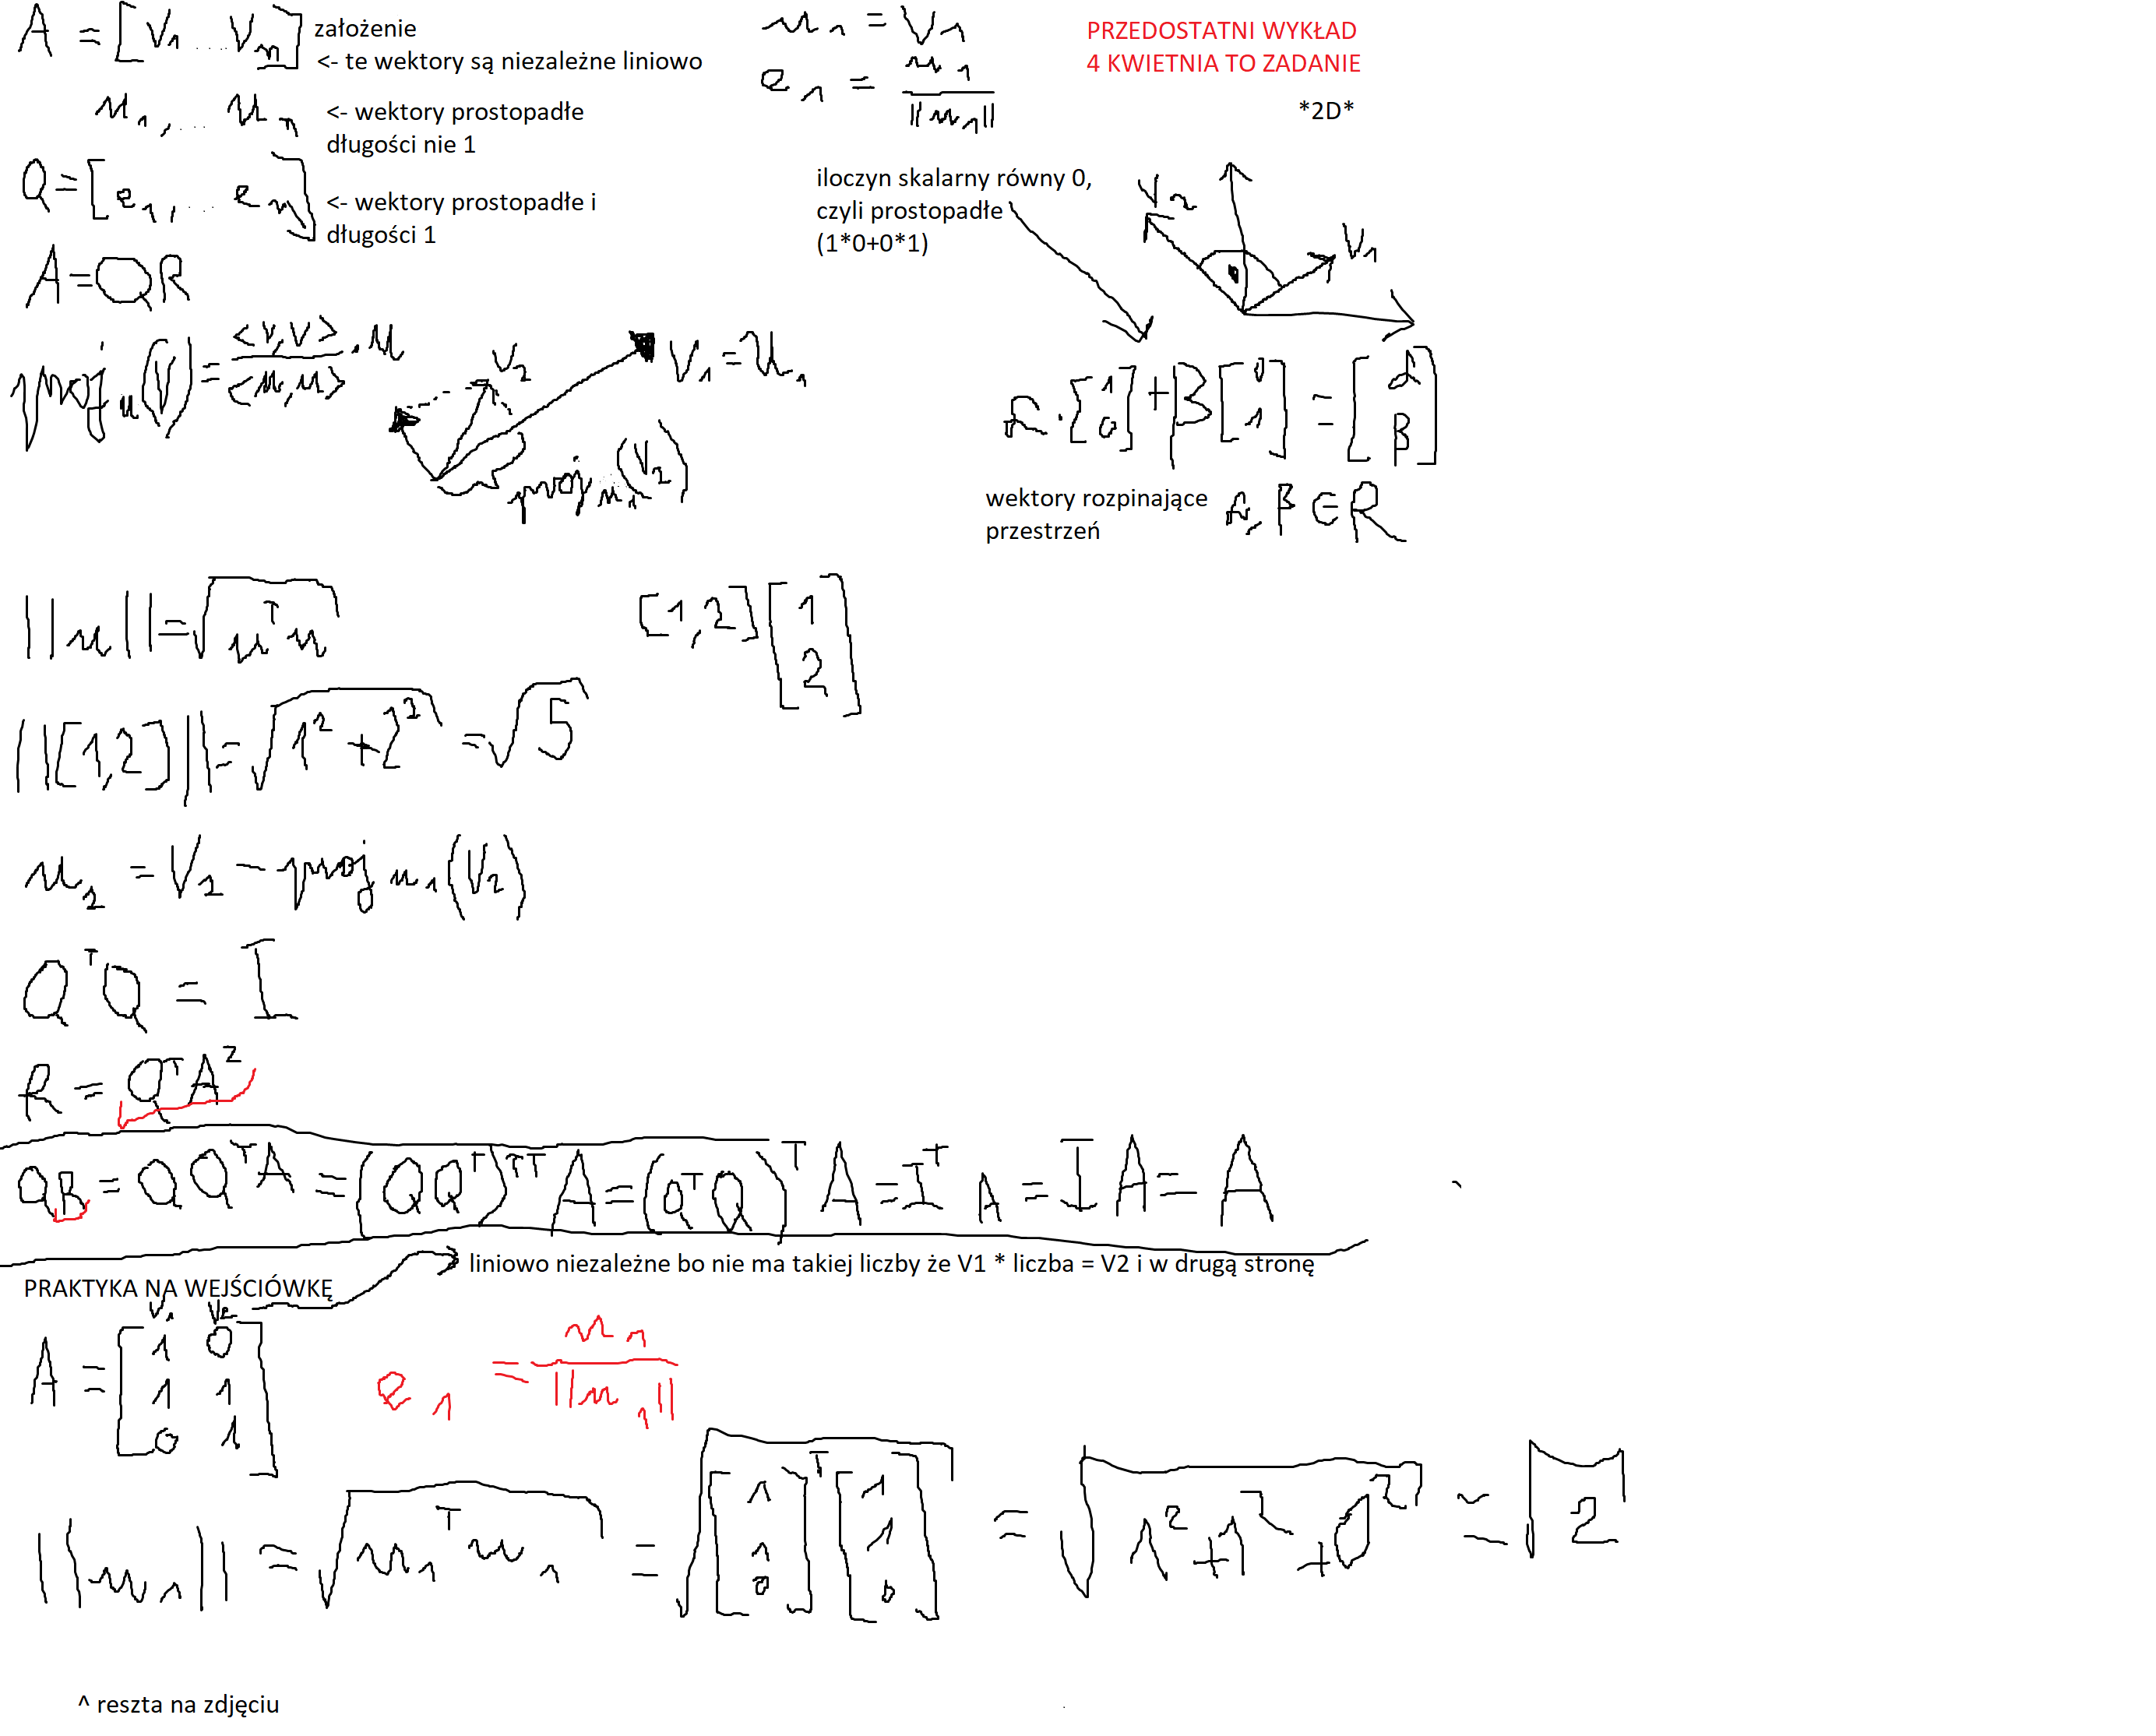 A = [V₁ .... Vₙ] założenie
<- te wektory są niezależne liniowo
u₁, ... uₙ <- wektory prostopadłe
długości nie 1
Q = [e₁, ... eₙ] <- wektory prostopadłe i
długości 1
A = QR
proj_u(V) = <v,v>/<u,u> · u
V₂
V₁ = u₁
proj_u₁(V₂)
u₁ = V₁
e₁ = u₁/||u₁||
PRZEDOSTATNI WYKŁAD
4 KWIETNIA TO ZADANIE
*2D*
iloczyn skalarny równy 0,
czyli prostopadłe
(1*0+0*1)
V₂
V₁
α · [1 0] + β [0 1] = [α β]
wektory rozpinające
przestrzeń
α, β ∈ R
||u|| = √(uᵀu)
[1,2] [1 2]
||[1,2]|| = √(1² + 2²) = √5
u₂ = V₂ - proj_u₁(V₂)
QᵀQ = I
R = QᵀA²
QB = QQᵀA = (QQᵀ)ᵀᵀ A = (QᵀQ)ᵀ A = Iᵀ A = IA = A
liniowo niezależne bo nie ma takiej liczby że V1 * liczba = V2 i w drugą stronę
PRAKTYKA NA WEJŚCIÓWKĘ
V₁ V₂
A = [1 0
1 1
0 1]
e₁ = u₁/||u₁||
||u₁|| = √(u₁ᵀu₁) = √([1 1 0]ᵀ [1 1 0]) = √(1² + 1² + 0²) = √2
^ reszta na zdjęciu